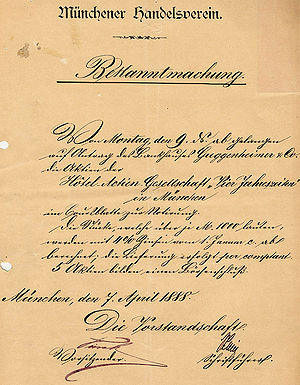 Münchener Handelsverein.
Bekanntmachung.
Von Montag, den 9. ds. ab gelangen
auf Antrag des Bankhauses Guggenheimer & Co.
die Aktien der
Hôtel Actien Gesellschaft „Vier Jahreszeiten"
in München
im Coursblatte zur Notierung.
Die Stücke, welche über je M. 1000 lauten,
werden mit 4% Zinsen vom 1. Januar c. ab
berechnet, die Lieferung erfolgt per comptant.
5 Aktien bilden einen Lieferschluß.
München, den 7. April 1888.
Die Vorstandschaft.
Vorsitzender. Schriftführer.